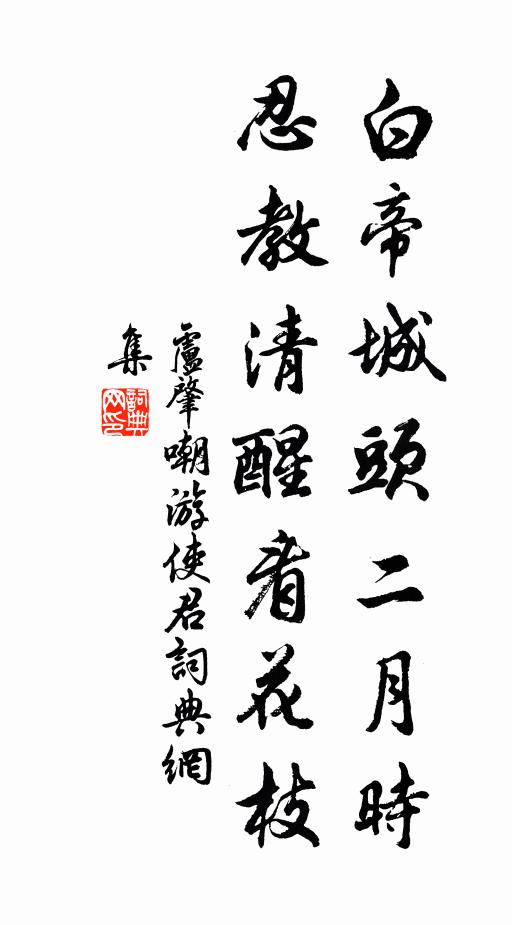 白帝城頭二月時
忍教清醒看花枝
盧肇嘲游使君詞典網
集
詞典网印